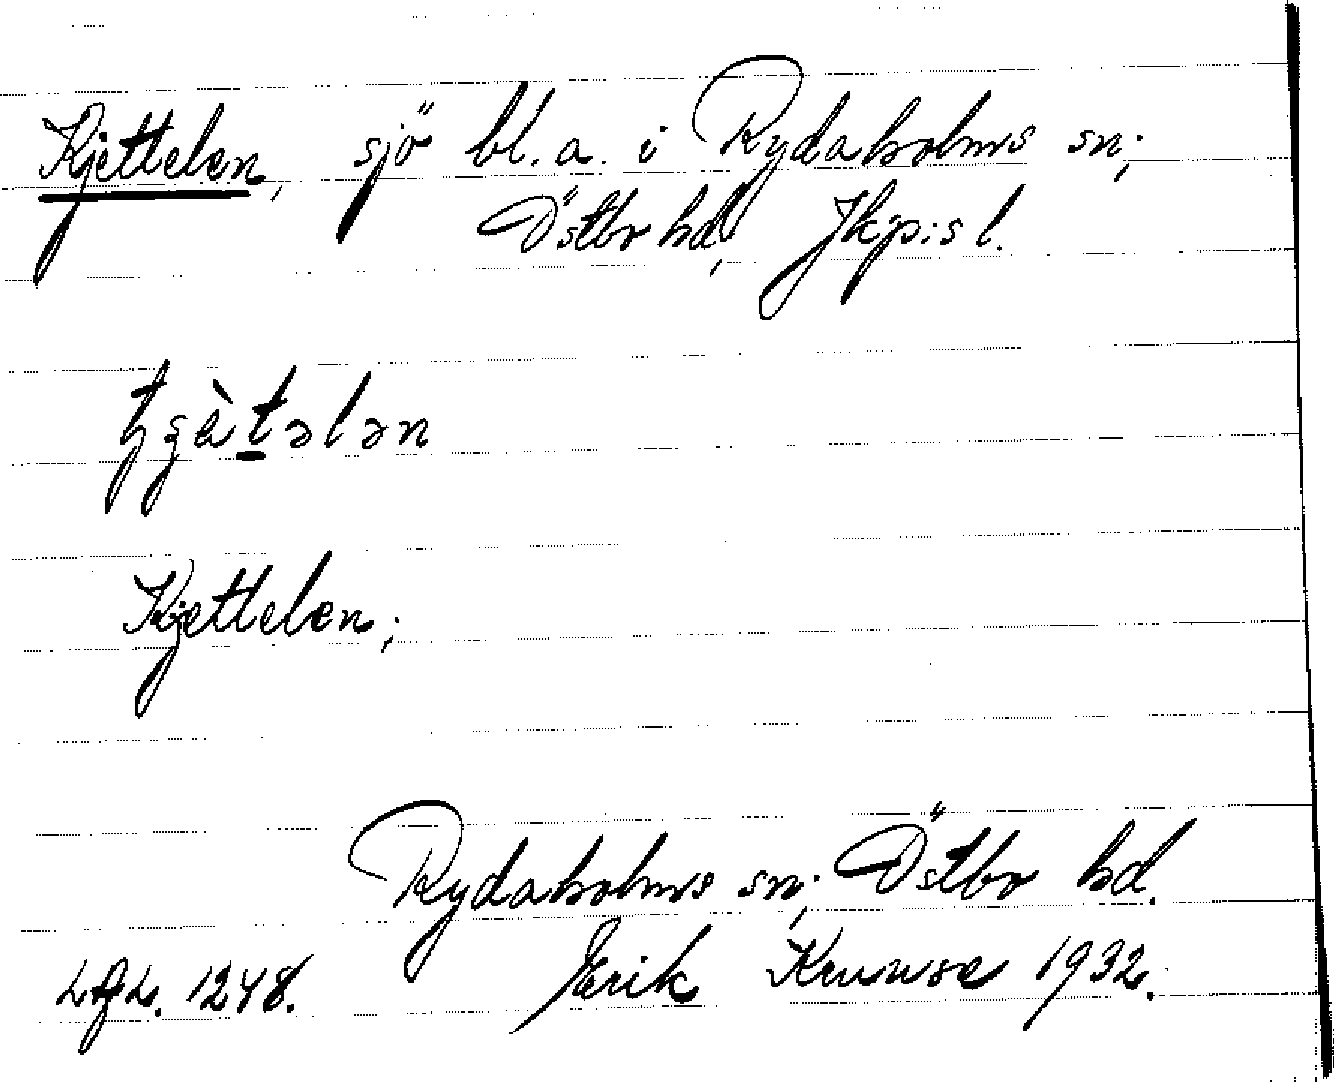 Kjettelen, sjö bl. a. i Rydaholms sn;
Östbo hd, Jkp:s l.
Kjettelen;
Rydaholms sn; Östbo hd.
1248. Erik Kruuse 1932.